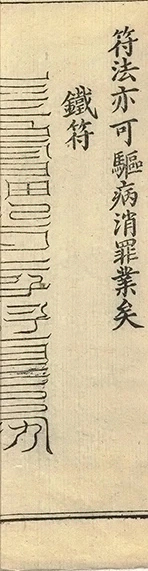 符法亦可驅病消罪業矣
鐵符